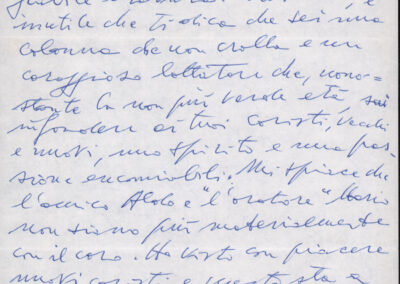 è
inutile che ti dica che sei una
colonna che non crolla e un
coraggioso lottatore che, nono=
stante la non più verde età, sai
infondere ai tuoi coristi, vecchi
e nuovi, uno spirito e una pas-
sione encomiabili. Mi spiace che
l'amico Aldo e "l'oratore" Mario
non siano più materialmente
con il coro. Ho visto con piacere
nuovi coristi e questo sta a